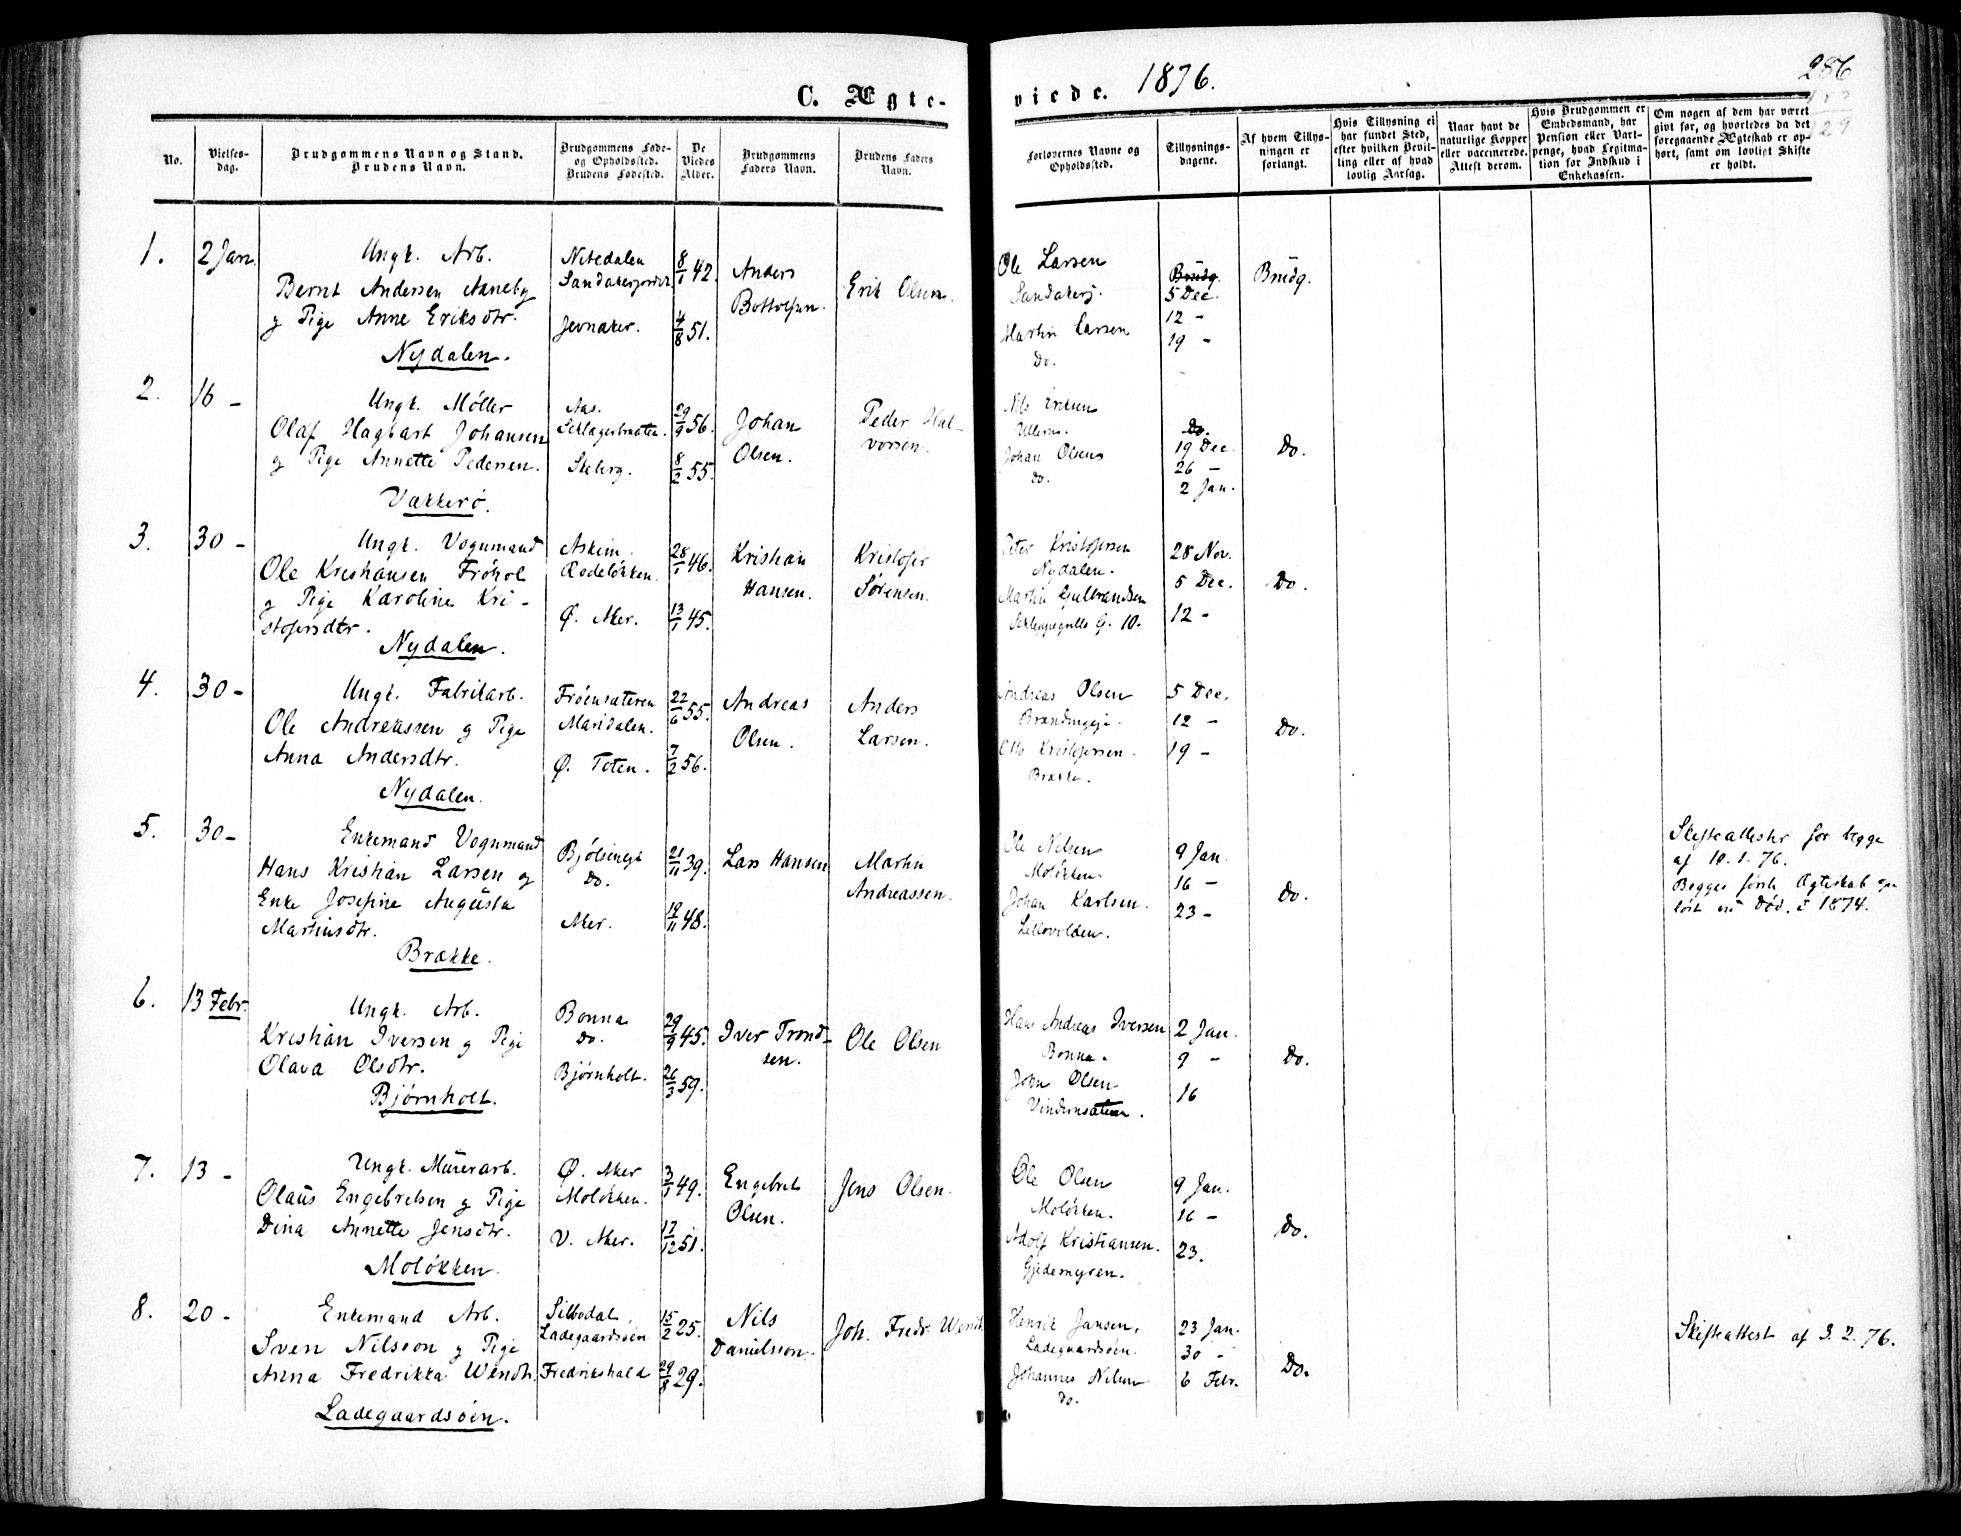 286
C. Ægte-
viede. 1876.
No.
Vielses-
dag.
Brudgommens Navn og Stand.
Brudens Navn.
Brudgommens Føde-
og Opholdssted.
Brudens Fødested.
De
Viedes
Alder.
Brudgommens
Faders Navn.
Brudens Faders
Navn.
Forlovernes Navne og
Opholdssted.
Tillysnings-
dagene.
Af hvem Tillys-
ningen er
forlangt.
Hvis Tillysning ei
har fundet Sted,
efter hvilken Bevil-
ling eller af hvad
lovlig Aarsag.
Naar havt de
naturlige Kopper
eller vaccinerede.
Attest derom.
Hvis Brudgommen er
Embedsmand, har
Pension eller Vart-
penge, hvad Legitima-
tion for Indskud i
Enkekassen.
Om nogen af dem har været
gift før, og hvorledes da det
foregaaende Ægteskab er op-
hørt, samt om lovligt Skifte
er holdt.
1. 2 Jan.
Ungk. Arb.
Bernt Andersen Aaneby
og Pige Anne Eriksdtr.
Nydalen.
Nitedalen
Sandakerjordet
Jevnaker.
8/1 42.
4/8 51.
Anders
Bottolfsen.
Erik Olsen.
Ole Larsen
Sandakerj.
Martin Larsen
Do.
Brudg.
5 Dec.
12 -
19 -
Brudg.
2. 16 -
Ungk. Møller
Olaf Hagbart Johansen
og Pige Annette Pedersen.
Vækkerø.
Aas.
Seklagerbraaten.
Skiberg.
29/9 56.
8/2 55.
Johan
Olsen.
Peder Hal-
vorsen.
Nils Eriksen
Ullern.
Johan Olsen
do.
Do.
19 Dec.
26 -
2 Jan.
Do.
3. 30 -
Ungk. Vognmand
Ole Kristiansen Frøhol
og Pige Karoline Kri-
stofersdtr.
Nydalen.
Askim.
Rodeløkken.
Ø. Aker.
28/1 46.
13/1 45.
Kristian
Hansen.
Kristofer
Sørensen.
Peter Kristofersen
Nydalen.
Martin Gulbrandsen
Schleppegrells G. 10.
28 Nov.
5 Dec.
12 -
Do.
4. 30 -
Ungk. Fabrikarb.
Ole Andreassen og Pige
Anna Andersdtr.
Nydalen.
Frøensæteren
Maridalen.
Ø. Toten.
22/6 55.
7/2 56.
Andreas
Olsen.
Anders
Larsen.
Andreas Olsen
Brændingeje.
Otto Kristofersen.
Brække.
5 Dec.
12 -
19 -
Do.
5. 30 -
Enkemand Vognmand
Hans Kristian Larsen og
Enke Josefine Augusta
Martinsdtr.
Brække.
Bjølseneje
Do.
Aker.
21/11 39.
19/11 48.
Lars Hansen
Martin
Andreassen.
Ole Nilsen
Moløkken.
Johan Karlsen.
Lillevolden.
9 Jan.
16 -
23 -
Do.
Skifteattester for begge
af 10.1.76.
Begges første Ægteskab op-
løst ved Død i 1874.
6. 13 Febr.
Ungk. Arb.
Kristian Iversen og Pige
Olava Olsdtr.
Bjørnholt.
Bonna
Do.
Bjørnholt.
29/9 45.
26/3 59.
Iver Trond-
sen.
Ole Olsen
Hans Andreas Iversen
Bonna.
John Olsen
Vindernsæteren.
2 Jan.
9 -
16
Do.
7. 13 -
Ungk. Murerarb.
Olaus Engebretsen og Pige
Dina Annette Jensdtr.
Moløkken.
Ø. Aker
Moløkken.
V. Aker.
3/1 49.
17/12 51.
Engebret
Olsen.
Jens Olsen.
Ole Olsen
Moløkken.
Adolf Kristiansen.
Gjedemyren.
9 Jan.
16 -
23.
Do.
8. 20 -
Enkemand Arb.
Sven Nilsson og Pige
Anna Fredrikka Wendt.
Ladegaardsøen.
Silbodal,
Ladegaardsøen
Fredrikshald
15/2 25.
29/8 29.
Nils
Danielsson.
Joh. Fredr. Wendt.
Henrik Jansen,
Ladegaardsøen.
Johannes Nilsen
do.
23 Jan.
30 -
6 Febr.
Do.
Skifteattest af 3.2.76.